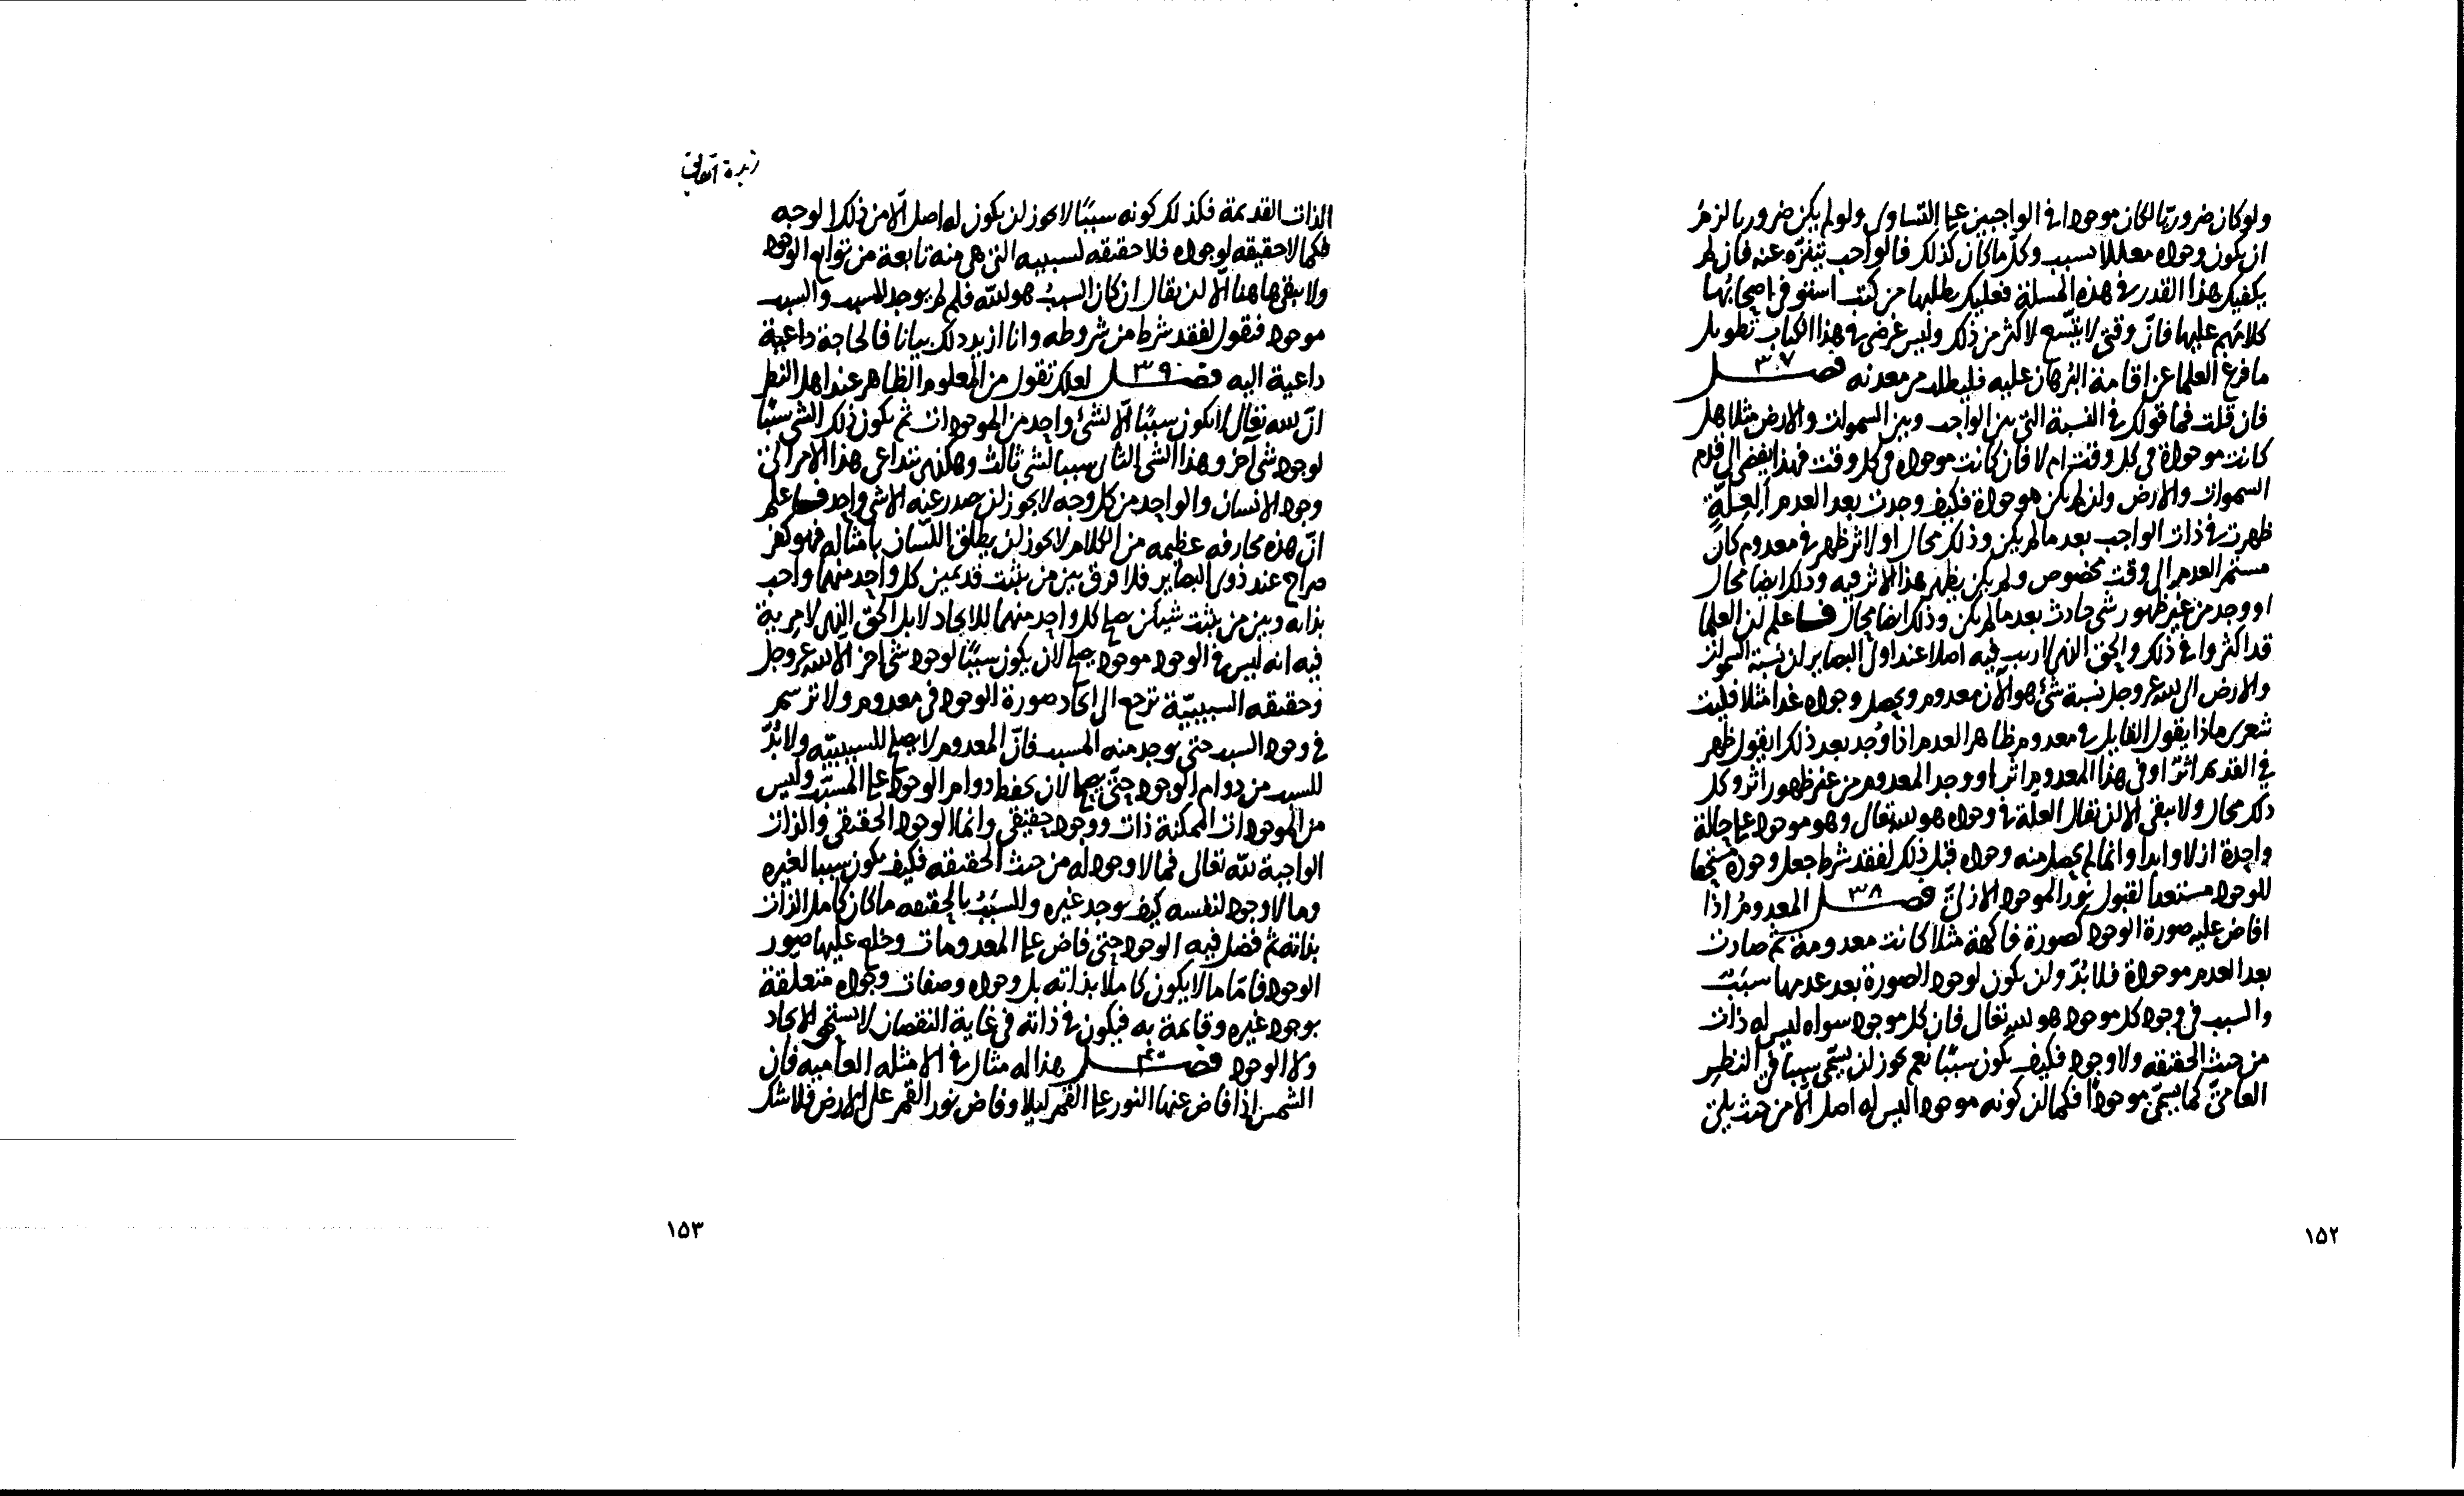 ولو كان ضروريا لكان موجودا في الواجبين على التساوى ولو لم يكن ضروريا لزم
ان يكون وجوده معللا بسبب وكل ما كان كذلك فالواجب يتنزه عنه فان لم
يكفيك هذا القدر في هذه المسئلة فعليك بطلبها من كتب استوفى اصحابها
كلامهم عليها فان وقتى لا يتسع لاكثر من ذلك وليس غرضى في هذا الكتاب تطويل
ما فرغ العلما عن اقامة البرهان عليه فليطلب من معدنه فصل ٣٧
فان قلت فما قولك في النسبة التى بين الواجب وبين السموات والارض مثلا هل
كانت موجودة في كل وقت ام لا فان كانت موجودة في كل وقت فهذا يفضى الى قدم
السموات والارض وان لم يكن موجودة فكيف وجدت بعد العدم ألعلة
ظهرت في ذات الواجب بعد ما لم يكن وذلك محال او لاثر ظهر في معدوم كان
مستمر العدم الى وقت مخصوص ولم يكن يظهر هذا الاثر فيه وذلك ايضا محال
او وجد من غير ظهور شى حادث بعد ما لم يكن وذلك ايضا محال فاعلم ان العلما
قد اكثروا في ذلك والحق الذى لا ريب فيه اصلا عند اولى البصاير ان نسبة السموات
والارض الى الله عز وجل نسبة شئ هو الآن معدوم ويحصل وجوده غدا مثلا فليت
شعرى ماذا يقول القايل في معدوم ظاهر العدم اذا وجد بعد ذلك ايقول ظهر
في القديم اثر او في هذا المعدوم اثر او وجد المعدوم من غير ظهور اثر وكل
ذلك محال ولا يبقى الا ان يقال العلة في وجوده هو الله تعالى وهو موجود على حالة
واحدة ازلا وابدا وانما لم يحصل منه وجوده قبل ذلك لفقد شرط جعل وجوده مستحقا
للوجود مستعدا لقبول نور الموجود الازلى فصل ٣٨ المعدوم اذا
افاض عليه صورة الوجود كصورة فاكهة مثلا كانت معدومة ثم صارت
بعد العدم موجودة فلا بد وان يكون لوجود الصورة بعد عدمها سبب
والسبب في وجود كل موجود هو الله تعالى فان كل موجود سواه ليس له ذات
من حيث الحقيقه ولا وجود فكيف يكون سببا نعم يجوز ان يسمى سببا في النظر
العامى كما يسمى موجودا فكما ان كونه موجودا ليس له اصل الا من حيث يلى
١٥٢
زبدة الحقائق
الذات القديمة فكذلك كونه سببا لا يجوز ان يكون له اصل الا من ذلك الوجه
فكما لا حقيقه لوجوده فلا حقيقه لسببيه التى هى منه تابعة من توابع الوجود
ولا يبقى هاهنا الا ان يقال ان كان السبب هو الله فلم لم يوجد المسبب والسبب
موجود فنقول لفقد شرط من شروطه وانا ازيد ذلك بيانا فالحاجة داعية
داعية اليه فصل ٣٩ لعلك تقول من المعلوم الظاهر عند اهل النظر
ان الله تعالى لا يكون سببا الا لشئ واحد من الموجودات ثم يكون ذلك الشى سببا
لوجود شى آخر وهذا الشى الثانى سببا لشى ثالث وهكذى يتداعى هذا الامر الى
وجود الانسان والواحد من كل وجه لا يجوز ان يصدر عنه الا شى واحد فاعلم
ان هذه مجازفه عظيمه من الكلام لا يجوز ان يطلق اللسان بامثاله فهو كفر
صراح عند ذوى البصاير فلا فرق بين من يثبت قديمين كل واحد منهما واجب
بذاته وبين من يثبت شيئين يصلح كل واحد منهما للايجاد لا بل الحق الذى لا مرية
فيه انه ليس في الوجود موجود يصلح لان يكون سببا لوجود شى آخر الا الله عز وجل
وحقيقه السببيّة ترجع الى ايجاد صورة الوجود في معدوم ولا ترسم
في وجود السبب حتى يوجد منه المسبب فان المعدوم لا يصلح للسببيّه ولا بد
للسبب من دوام الوجود حتى يصلح لان يحفظ دوام الوجود على المسبب وليس
من الموجودات الممكنة ذات ووجود حقيقى وانما الوجود الحقيقى والذات
الواجبة لله تعالى فما لا وجود له من حيث الحقيقه فكيف يكون سببا لغيره
وما لا وجود لنفسه كيف يوجد غيره والمسبب بالحقيقه ما كان كامل الذات
بذاته ثم فضل فيه الوجود حتى فاض على المعدومات وخلع عليها صور
الوجود فاما ما لا يكون كاملا بذاته بل وجوده وصفات وجوده متعلقة
بوجود غيره وقائمة به فيكون في ذاته في غاية النقصان لا يستحق الايجاد
ولا الوجود فصل ٤٠ هذا له مثال في الامثله العاميه فان
الشمس اذا فاض عنها النور على القمر ليلا وفاض نور القمر على الارض فلا شك
١٥٣